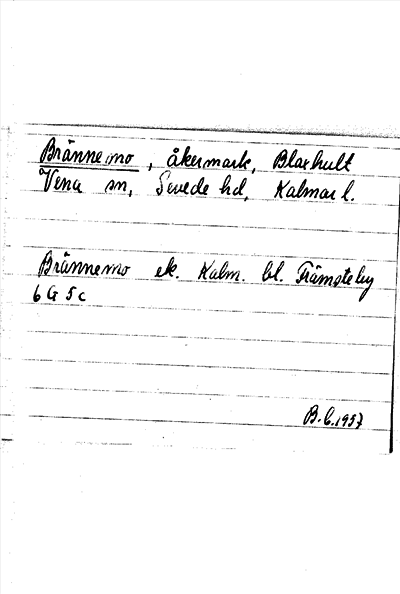 Brännemo, åkermark, Blaxhult
Vena sn, Sevede hd, Kalmar l.
Brännemo ek. Kalm. bl. Främsteby
6 G 5 c
B.C.1957